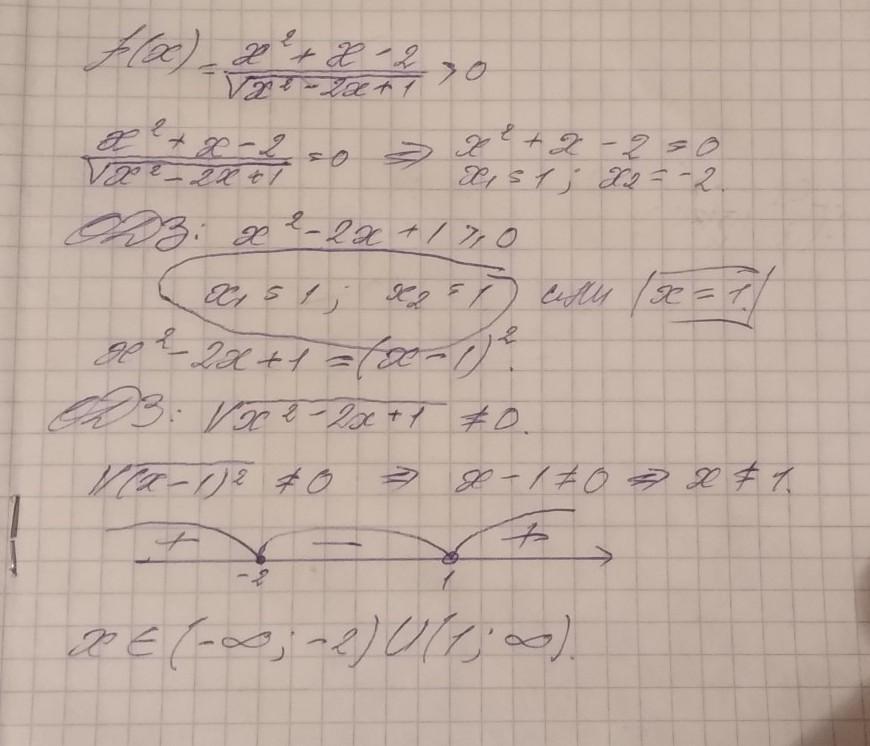 f(x) = x² + x - 2 / √x² - 2x + 1 > 0
x² + x - 2 / √x² - 2x + 1 = 0 ⇒ x² + x - 2 = 0
x₁ = 1; x₂ = -2.
ОДЗ: x² - 2x + 1 ⩾ 0
x₁ = 1; x₂ = 1 или |x = 1.|
x² - 2x + 1 = (x - 1)².
ОДЗ: √x² - 2x + 1 ≠ 0.
√(x - 1)² ≠ 0 ⇒ x - 1 ≠ 0 ⇒ x ≠ 1.
+ − +
-2 1
x ∈ (-∞; -2) U (1; ∞).